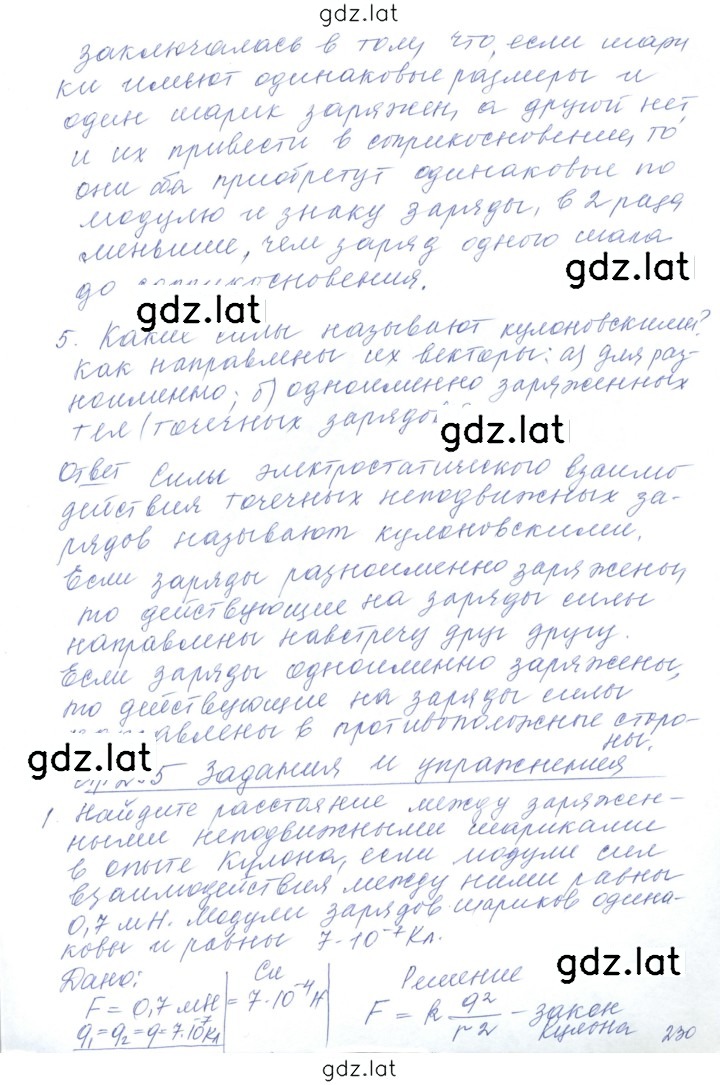 gdz.lat
заключалась в том, что, если шари
ки имеют одинаковые размеры и
один шарик заряжен, а другой нет,
и их привести в соприкосновение, то
они оба приобретут одинаковые по
модулю и знаку заряды, в 2 раза
меньшие, чем заряд одного шара
до соприкосновения.
gdz.lat
gdz.lat
5. Какие силы называют кулоновскими?
Как направлены их векторы: а) для раз-
ноименно; б) одноименно заряженных
тел (точечных зарядов)
gdz.lat
Ответ Силы электростатического взаимо
действия точечных неподвижных за-
рядов называют кулоновскими.
Если заряды разноименно заряжены,
то действующие на заряды силы
направлены навстречу друг другу.
Если заряды одноименно заряжены,
то действующие на заряды силы
направлены в противоположные сторо-
ны.
gdz.lat
5 Задания и упражнения
1. Найдите расстояние между заряжен-
ными неподвижными шариками
в опыте Кулона, если модули сил
взаимодействия между ними равны
0,7 мН. Модули зарядов шариков одина-
ковы и равны 7·10⁻⁷ Кл.
gdz.lat
Дано: Си Решение
F = 0,7 мН = 7·10⁻⁴ Н F = k q²/r² - закон
q₁=q₂=q=7·10⁻⁷Кл Кулона
230
gdz.lat